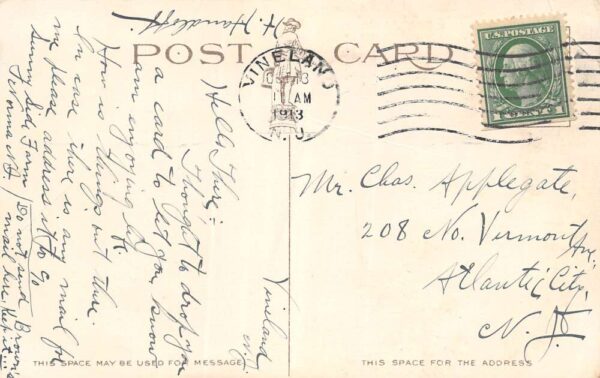 POST CARD
VINELAND
AM
1913
N.J.
U.S. POSTAGE
Vineland
N.J.
Hello There:
Thought to drop you
a card to let you know
am enjoying life.
How is things out there.
In case there is any mail for
me please address it to c/o
Sunny Side Farm
Norma N.J. / Do not send Brown's
mail here. Keep it...
H.
Mr. Chas. Applegate,
208 No. Vermont Av.
Atlantic City,
N. J.
THIS SPACE MAY BE USED FOR MESSAGE
THIS SPACE FOR THE ADDRESS